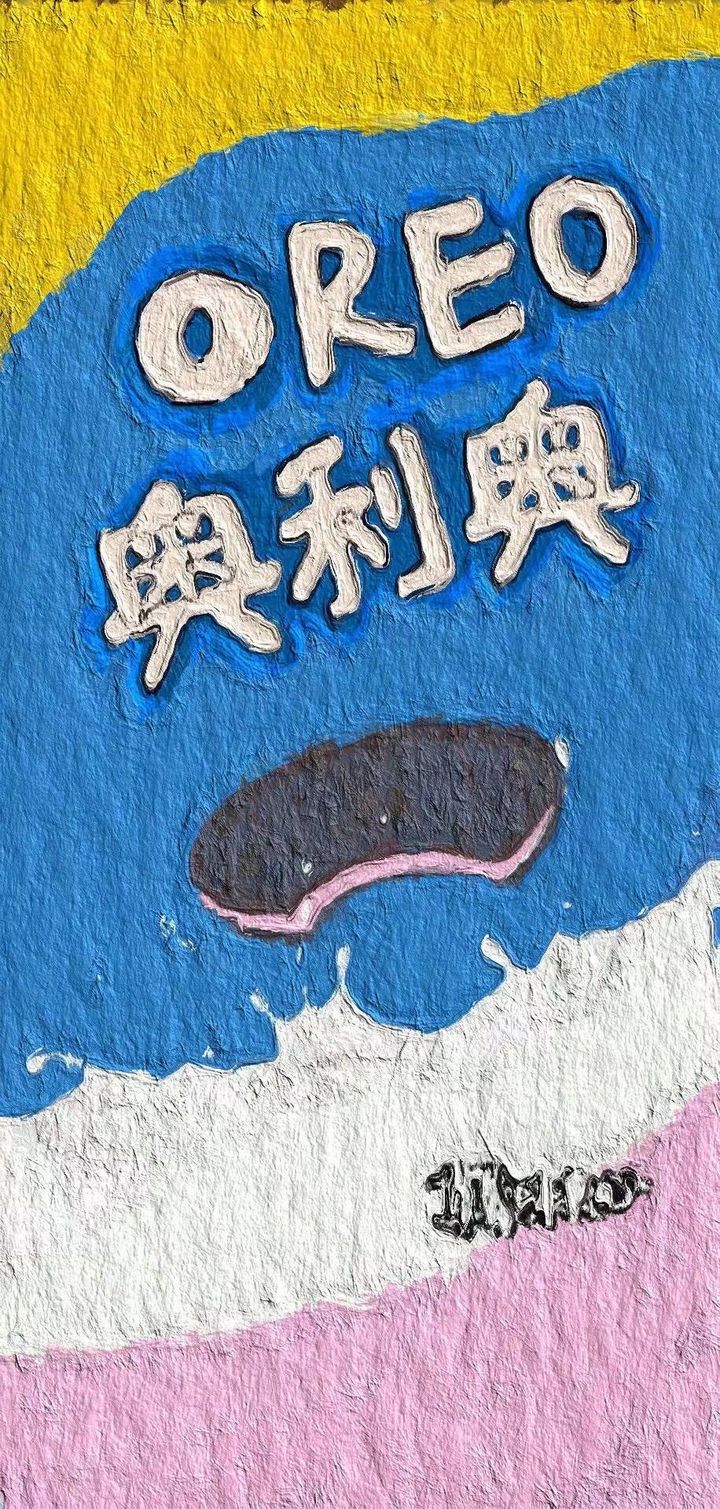 OREO
奥利奥